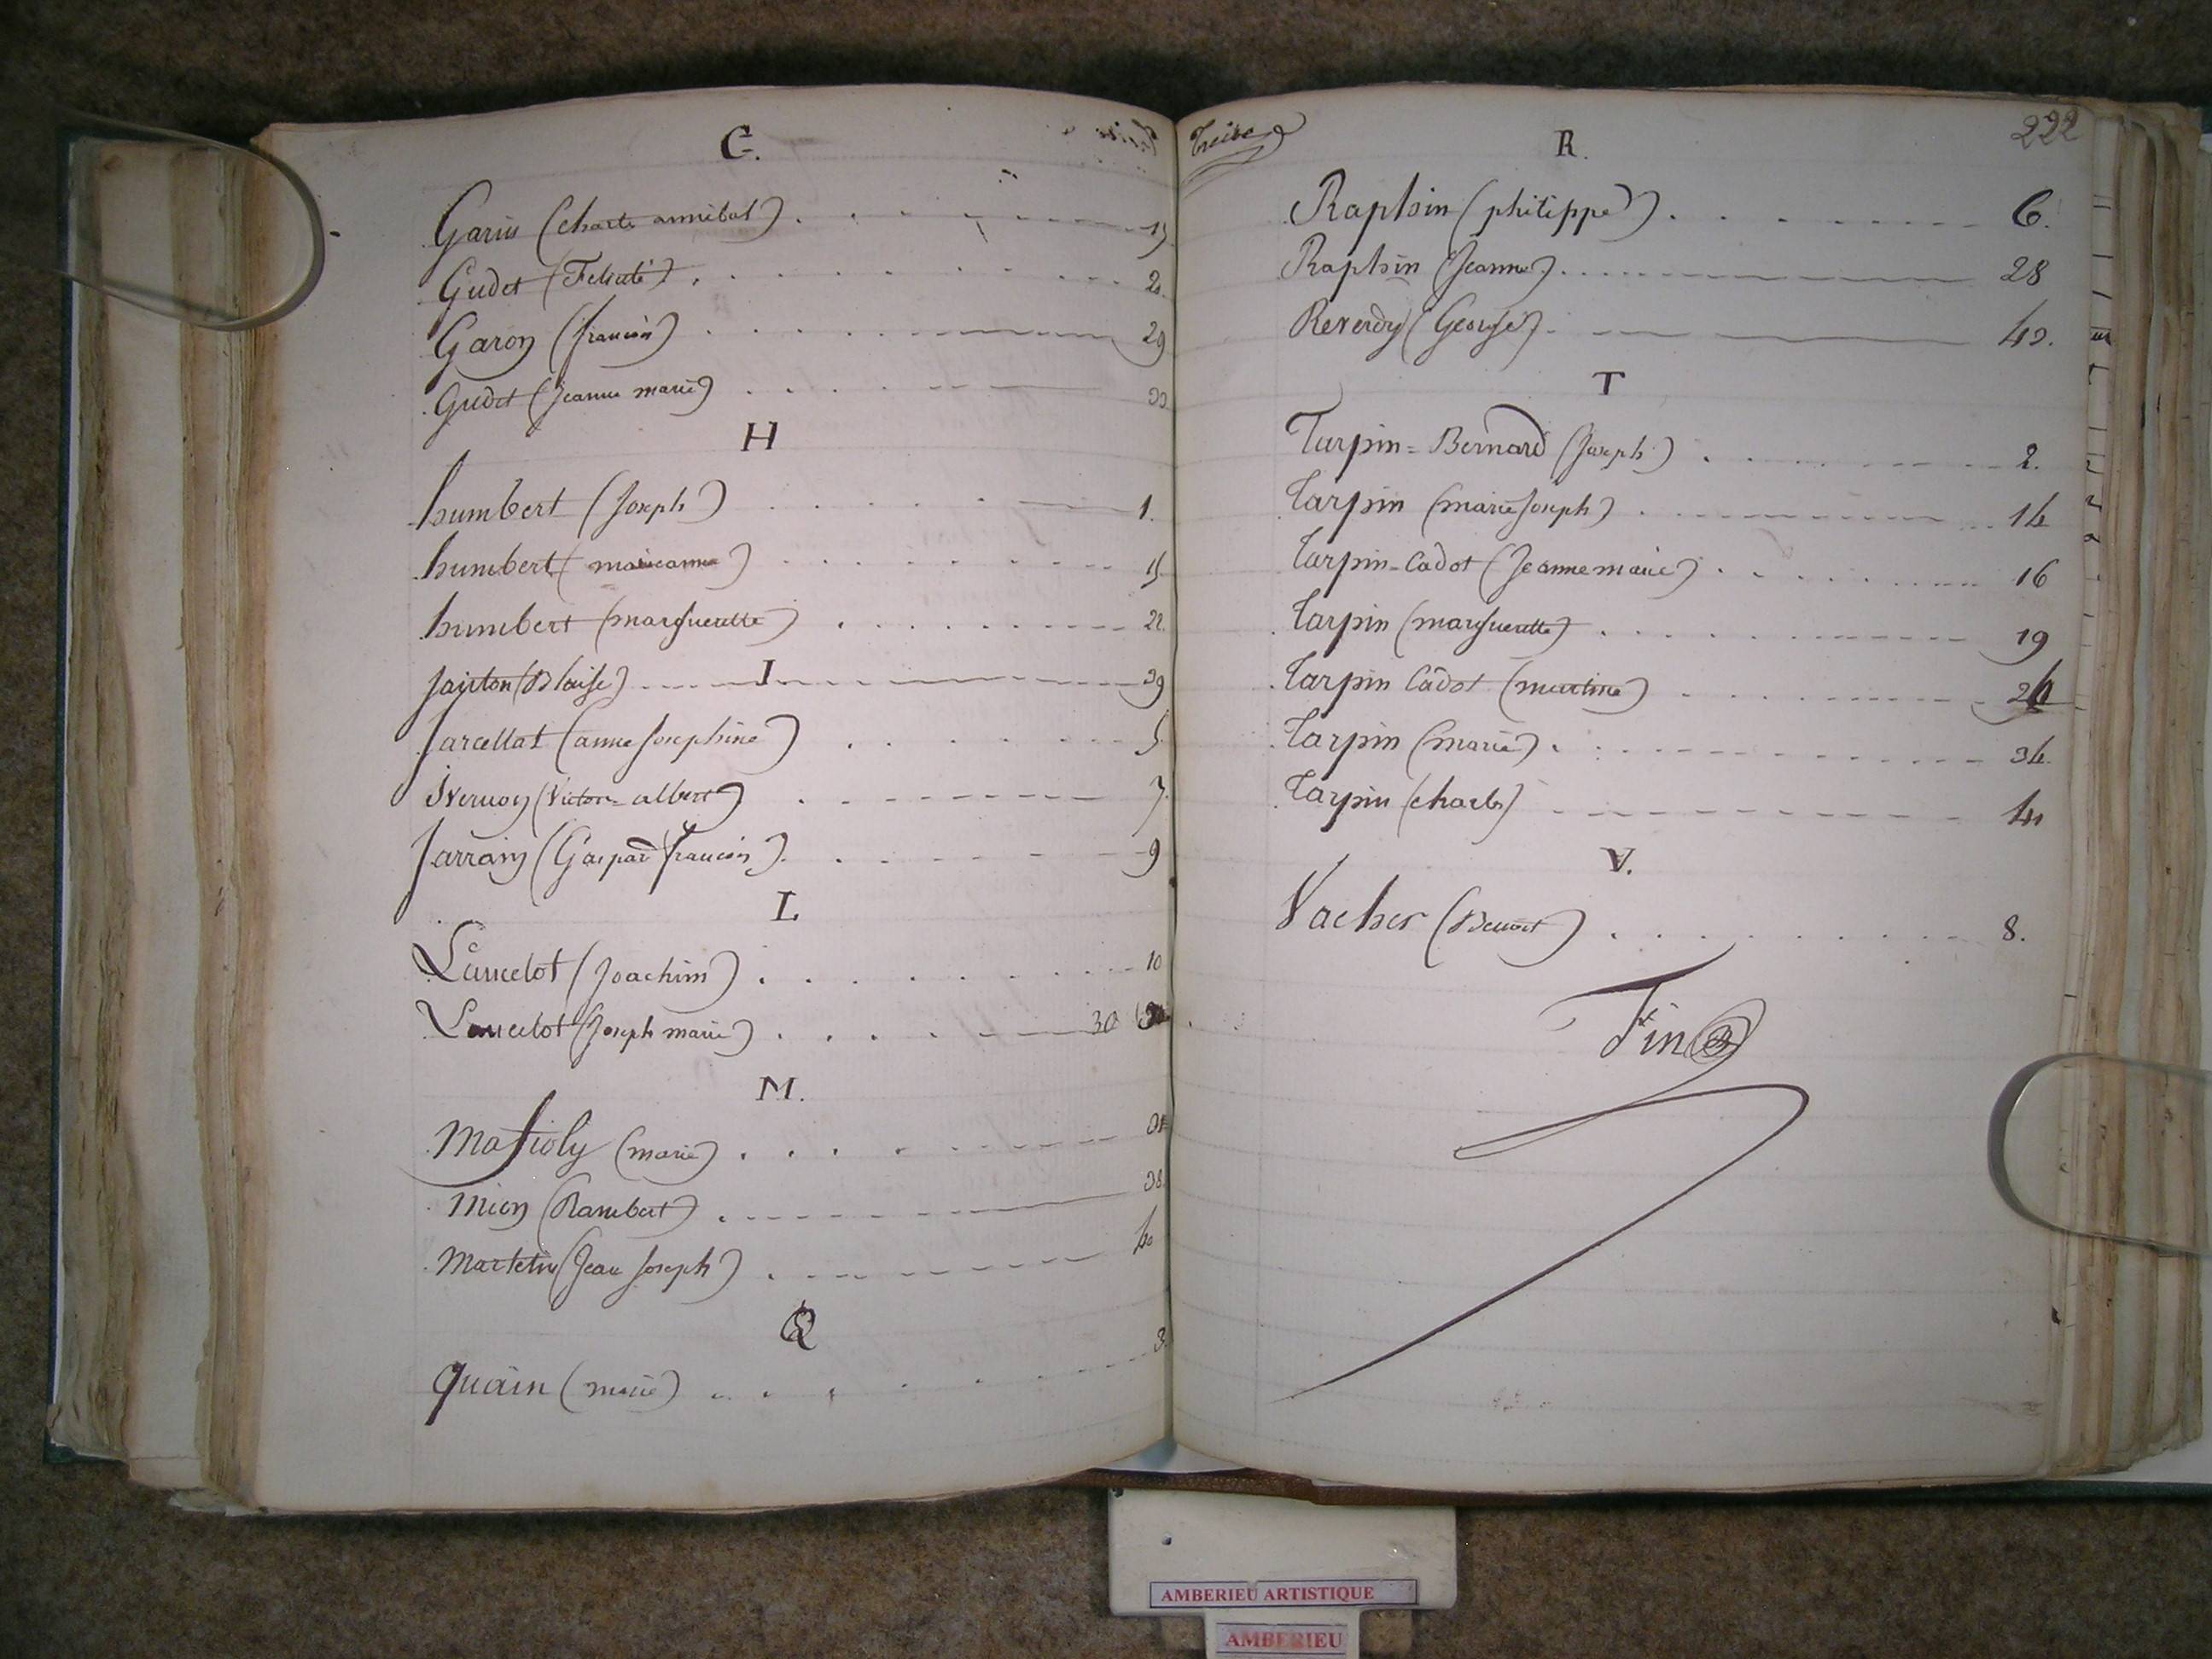 G.
Garin (charles annibal) 13
Gudet (Felicité) 20.
Garon (francois) 29
Gudet (Jeanne marie) 33
H
humbert (Joseph) 1.
humbert (marieanne) 15
humbert (margueritte) 22.
I
Jayton (Blaise) 39
Jarcellat (anne Josephine) 5
Ivernoy (Victor = albert) 7
Jarrain (Gaspard francois) 9
L
Lancelot (Joachim) 10
Lancelot (Joseph marie) 30
M.
Masioly (marie)
Mion (Rambert) 38.
Martelin (Jean Joseph) 40
Q
quain (marie) 3.
Treize
222
R.
Raphin (philippe) 6.
Raphin (Jeanne) 28
Reverdy (George) 42.
T
Tarpin = Bernard (Joseph) 2.
Tarpin (marie Joseph) 14
Tarpin-Cadot (Jeanne marie) 16
Tarpin (margueritte) 19
Tarpin Cadot (martine)
Tarpin (marie) 34.
Tarpin (charles) 41
V.
Vacher (Benoit) 8.
Fin
AMBERIEU ARTISTIQUE
AMBERIEU